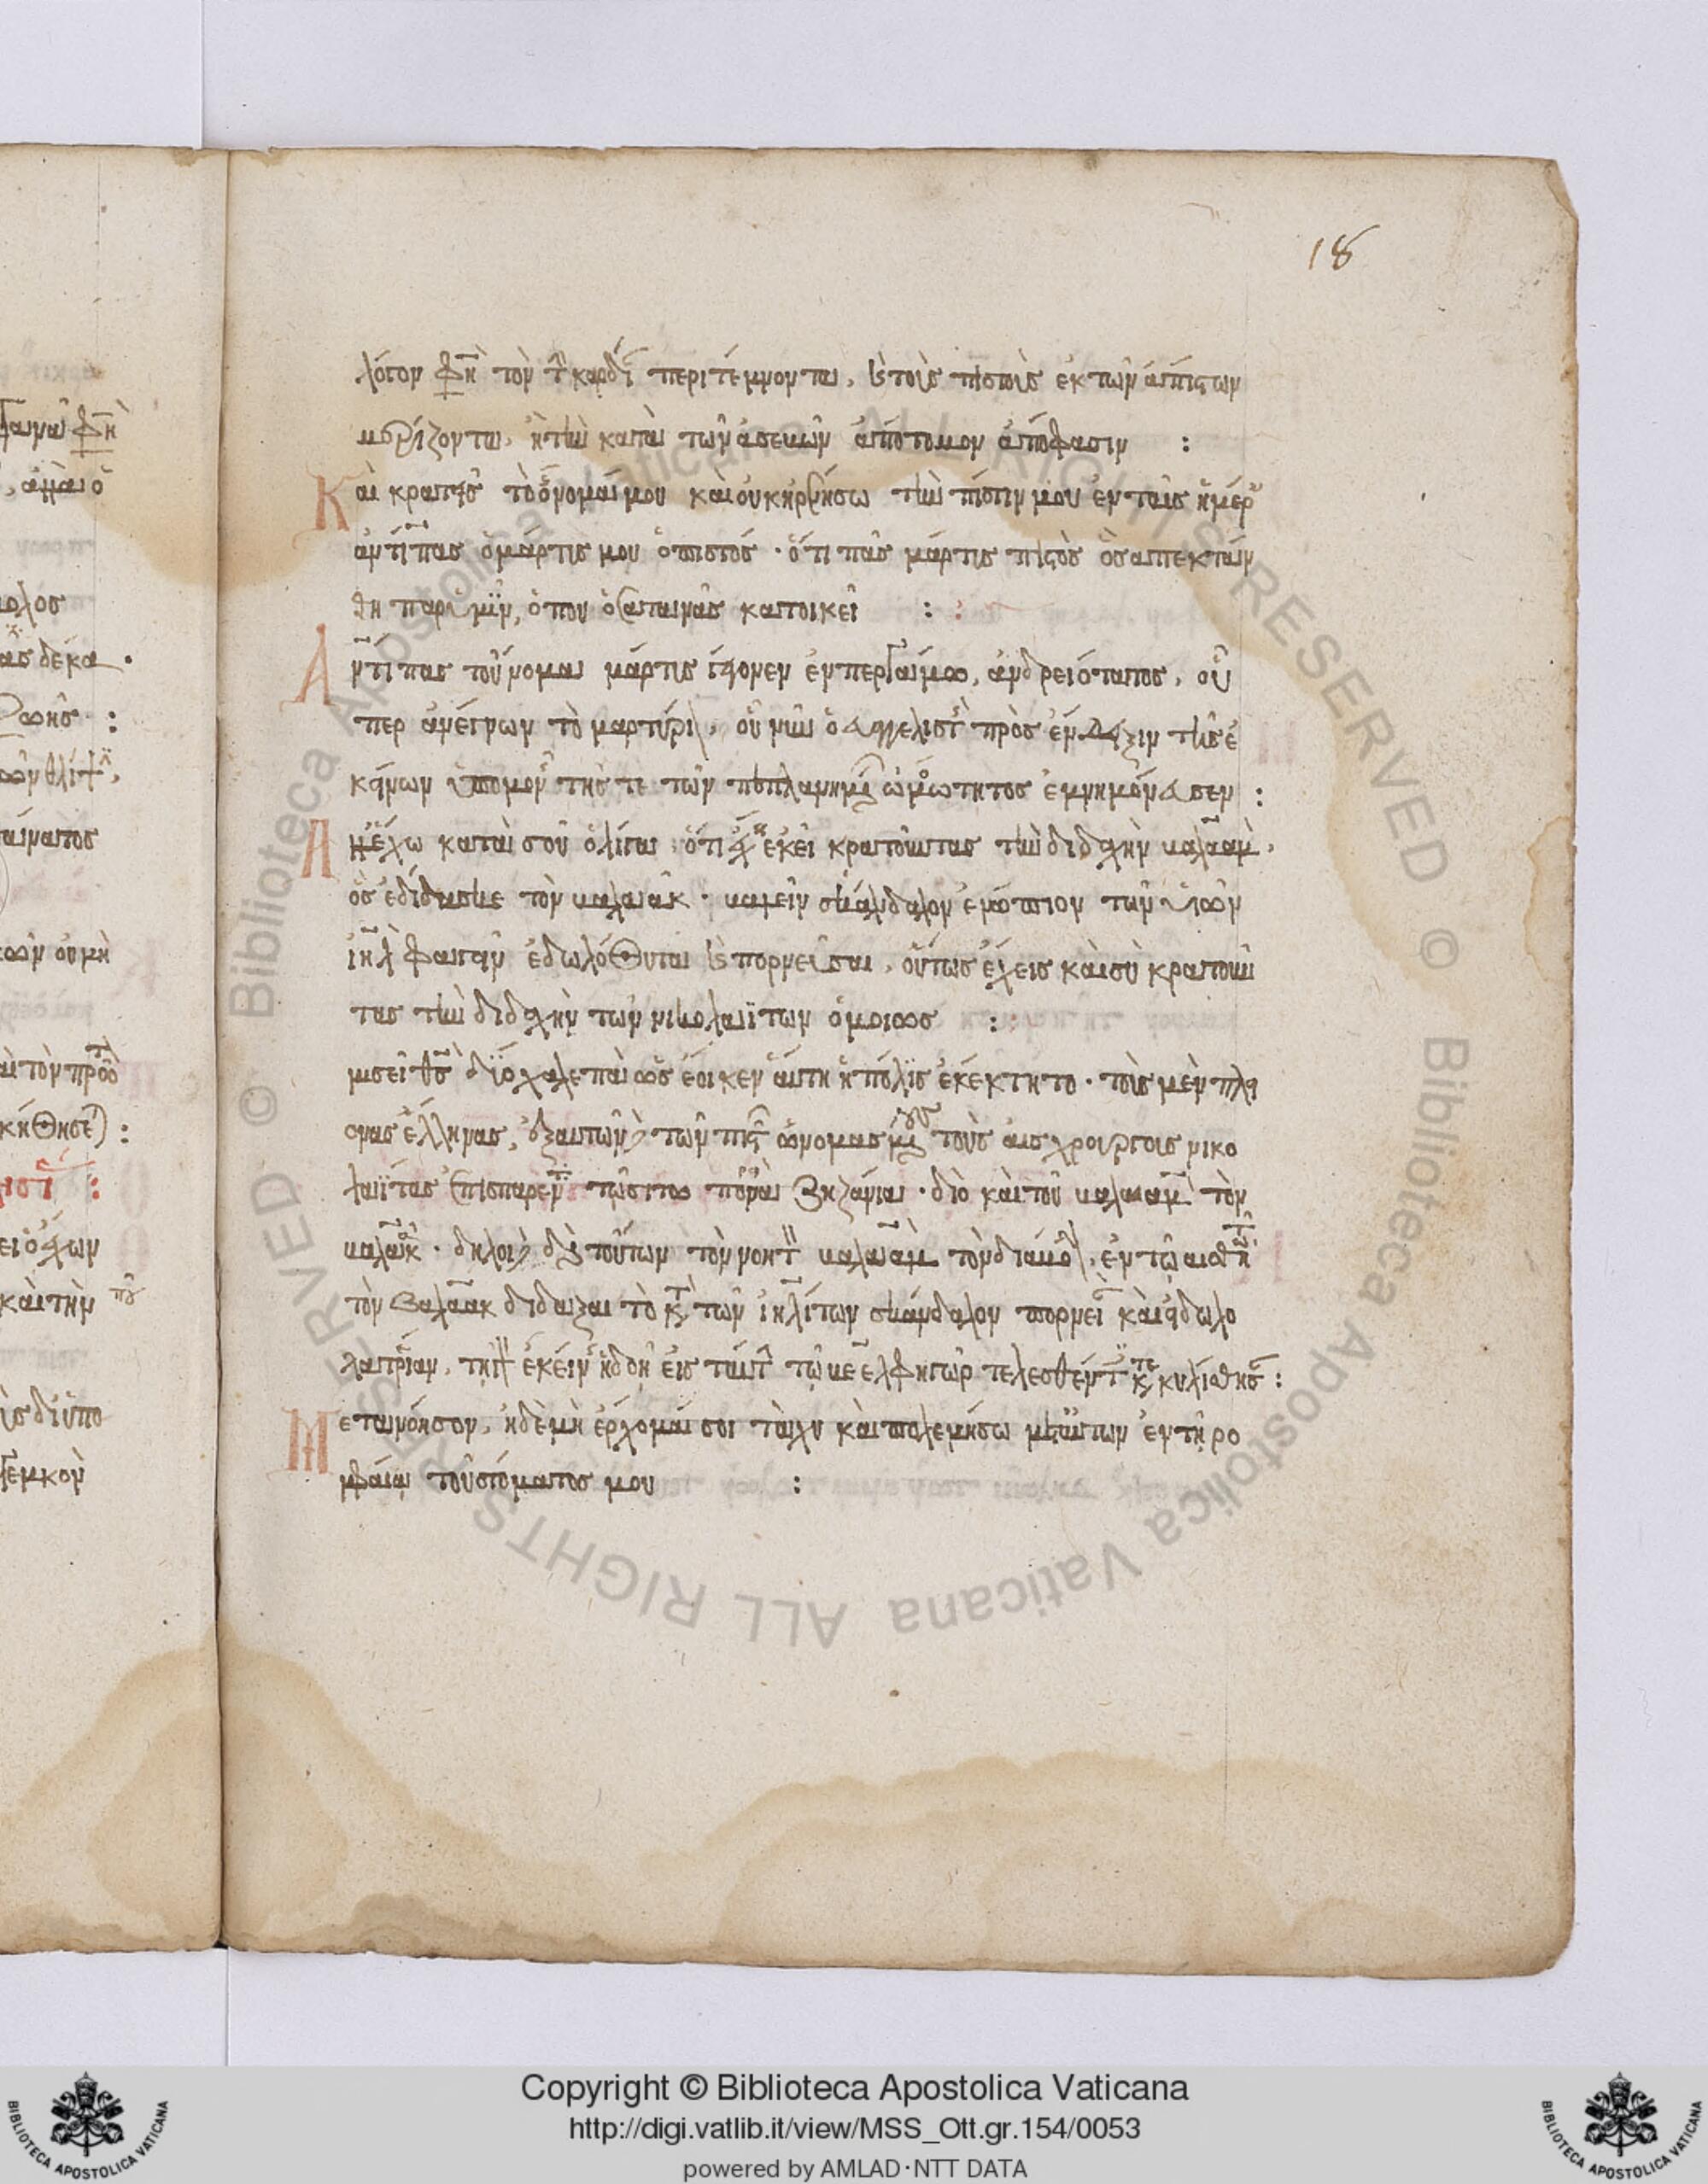 18
λόγον φησὶ τὸν τὰς καρδίας περιτέμνοντα, καὶ τοὺς πιστοὺς ἐκ τῶν ἀπίστων
μερίζοντα, ἢ τὴν κατὰ τῶν ἀσεβῶν ἀπότομον ἀπόφασιν :
Καὶ κρατεῖς τὸ ὄνομά μου καὶ οὐκ ἠρνήσω τὴν πίστιν μου ἐν ταῖς ἡμέραις
ἀντίπας ὁ μάρτις μου ὁ πιστός · ὅτι πᾶς μάρτις πιστὸς ὃς ἀπεκτάν
θη παρ' ὑμῖν, ὅπου ὁ σατανᾶς κατοικεῖ :
Ἀντίπας τοὔνομα μάρτις γέγονεν ἐν περγάμω, ἀνδρειότατος, οὗ
περ ἀνέγνων τὸ μαρτύριον, οὗ νῦν ὁ εὐαγγελιστὴς πρὸς ἔνδειξιν τῆς ἐ
κείνων ὑπομονῆς τῆς τε τῶν πεπλανημένων ὠμότητος ἐμνημόνευσεν :
Ἀλλ' ἔχω κατὰ σοῦ ὀλίγα, ὅτι ἔχεις ἐκεῖ κρατοῦντας τὴν διδαχὴν βαλαὰμ,
ὃς ἐδίδασκε τὸν βαλαὰκ · βαλεῖν σκάνδαλον ἐνώπιον τῶν υἱῶν
ἰηλ φαγεῖν ἐδωλόθυτα καὶ πορνεῦσαι, οὕτως ἔχεις καὶ σὺ κρατοῦν
τας τὴν διδαχὴν τῶν νικολαϊτῶν ὁμοίως :
δύο χαλεπὰ ὡς ἔοικεν αὕτη ἡ πόλις ἐκέκτητο · τοὺς μὲν πλεί
ονας ἕλληνας, ἐξ αὐτῶν δὲ τῶν πιστῶν ὠνομασμένων τοὺς αἰσχρουργοὺς νικο
λαΐτας ἐπισπαρέντας τῶ σίτω πονηρὰ ζηζάνια · διὸ καὶ τοῦ βαλαὰμ τὸν
βαλαὰκ · δηλοῖ δὲ διὰ τούτων τὸν νοητὸν βαλαὰμ τὸν διάβολον, ἐν τῶ αἰσθητῶ
τὸν βαλαὰκ διδάξαι τὸ κατὰ τῶν ἰηλιτῶν σκάνδαλον πορνείαν καὶ εἰδωλο
λατρείαν, τῆ γὰρ ἐκείνων ἡδονῆ εἰς ταύτην τῶ βεελφηγὼρ τελεσθέντες κατεκυλίσθησαν :
Μετανόησον, ἠ δὲ μὴ ἔρχομαί σοι τάχυ καὶ πολεμήσω μετ' αὐτῶν ἐν τῆ ρο
μφαία τοῦ στόματός μου :
Copyright © Biblioteca Apostolica Vaticana
http://digi.vatlib.it/view/MSS_Ott.gr.154/0053
powered by AMLAD·NTT DATA